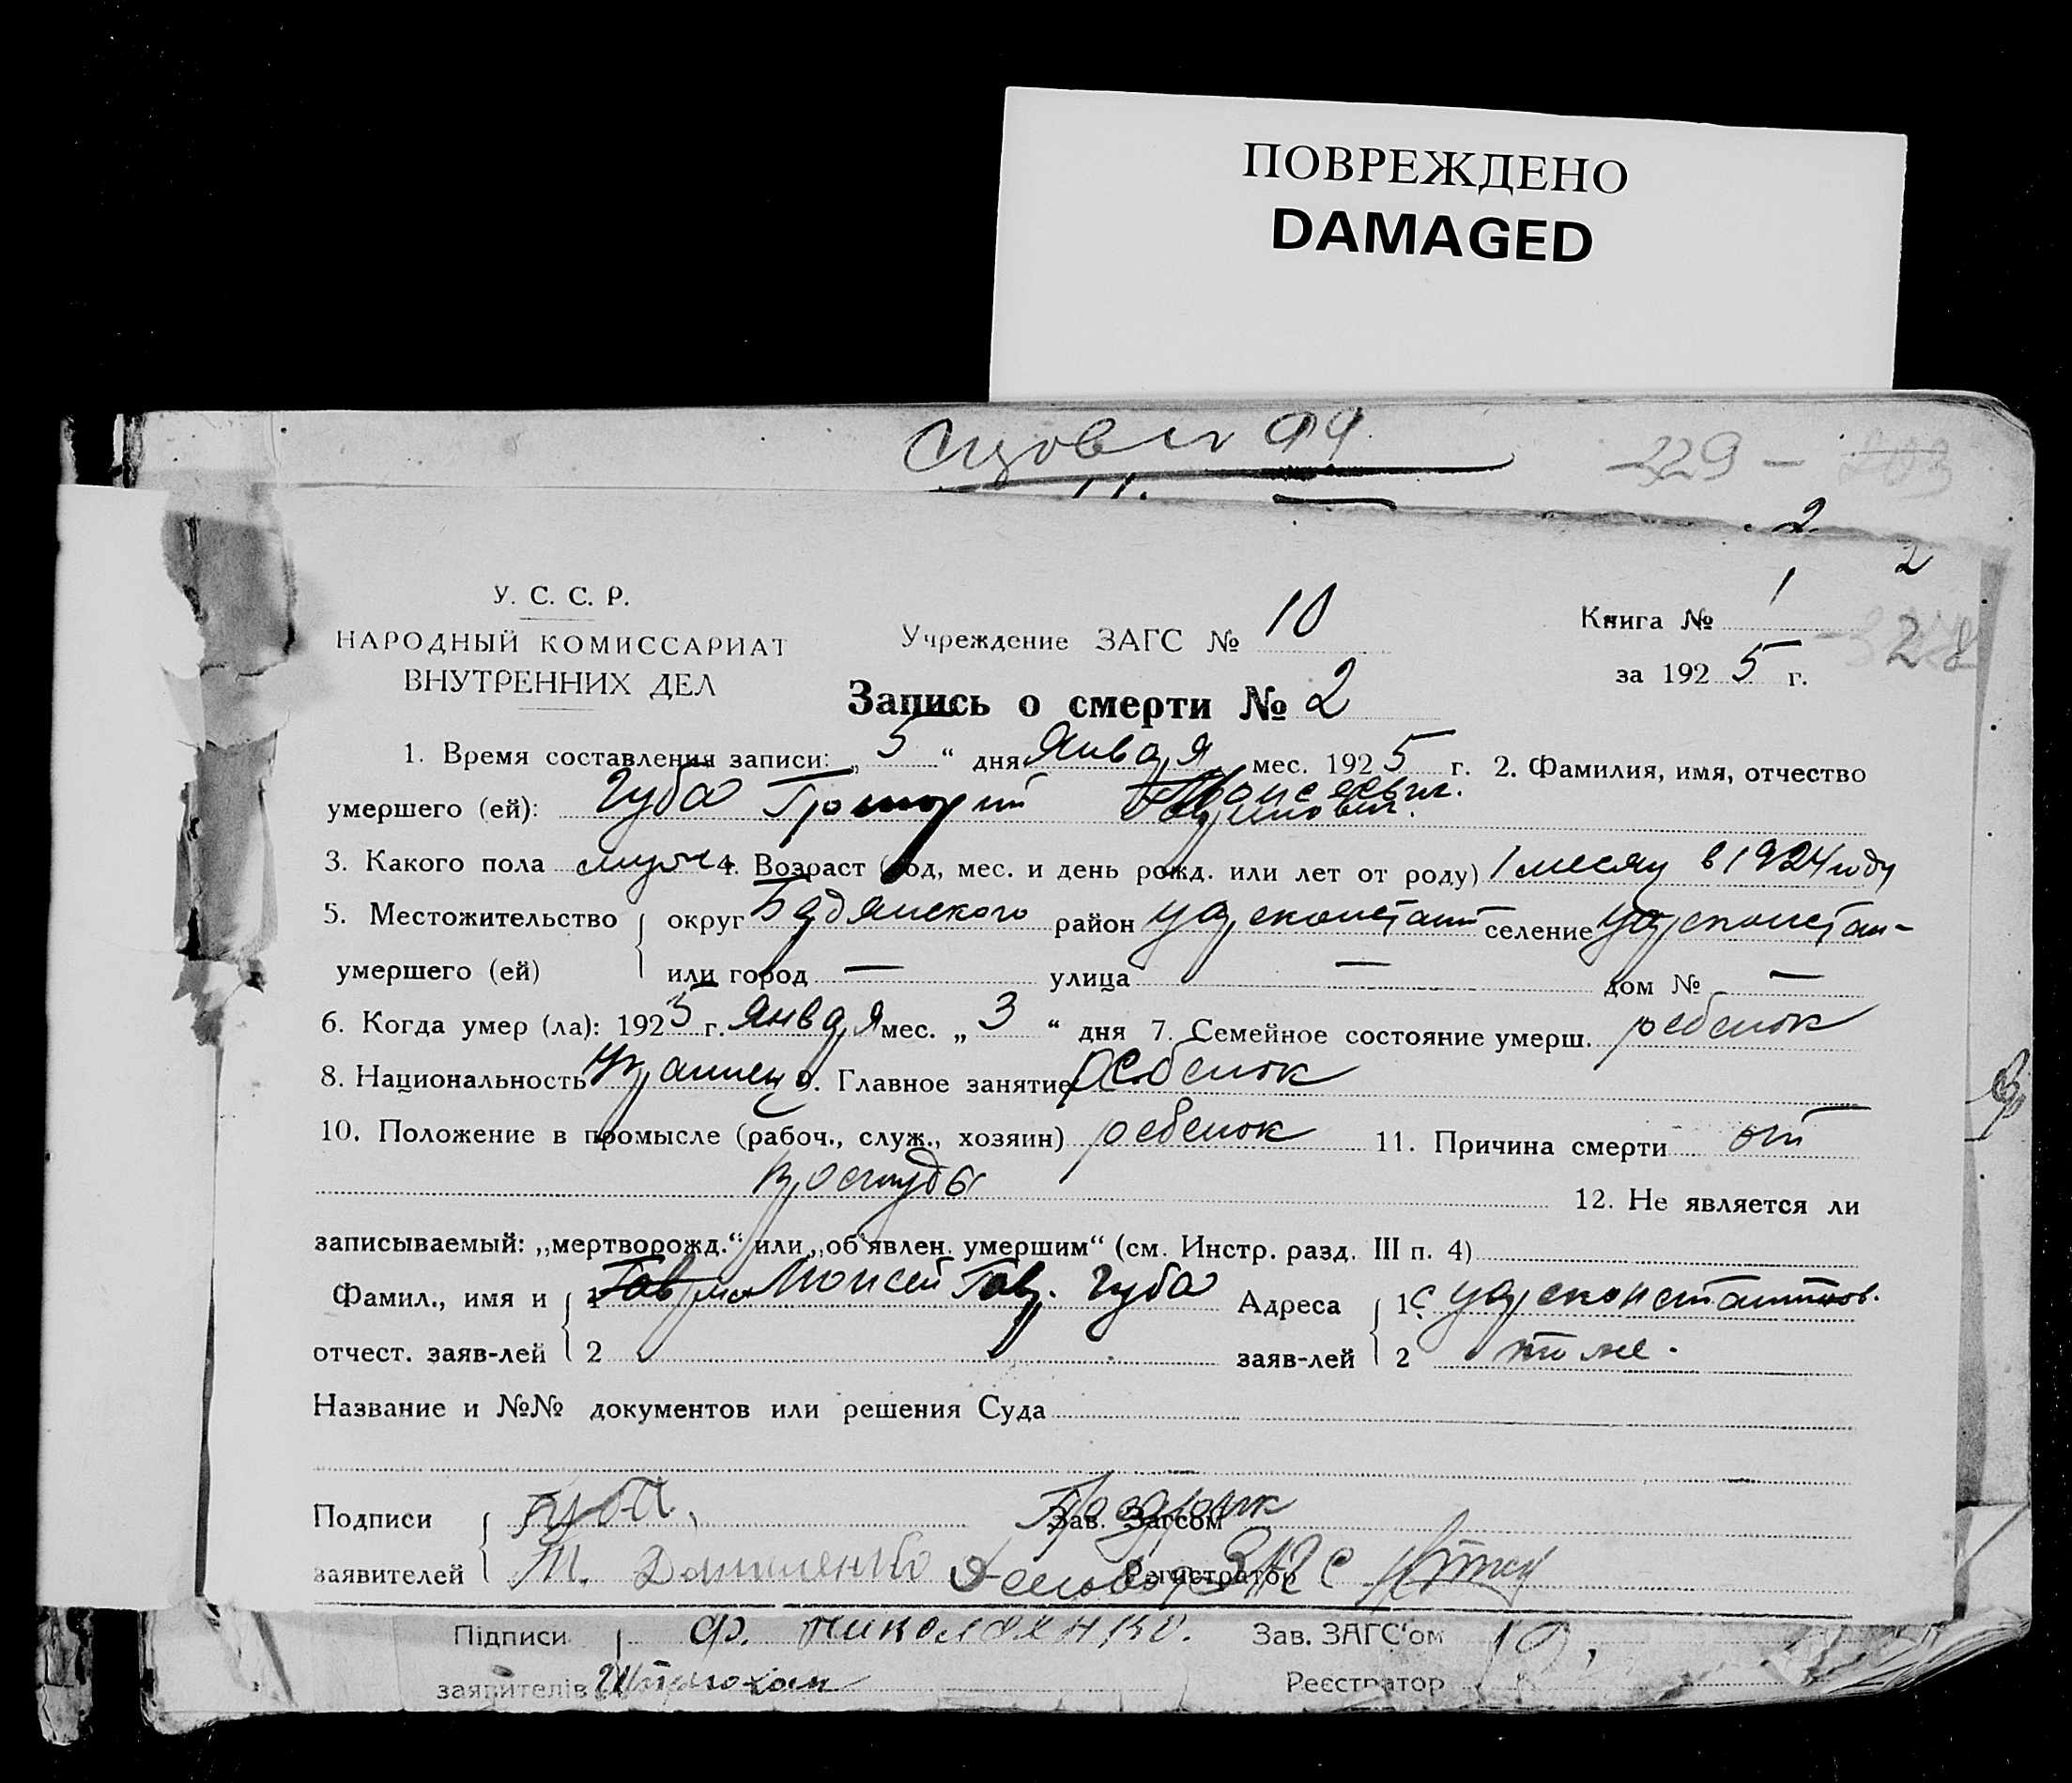 ПОВРЕЖДЕНО
DAMAGED
229 -
2
2
У. С. С. Р.
НАРОДНЫЙ КОМИССАРИАТ
ВНУТРЕННИХ ДЕЛ
Учреждение ЗАГС № 10
Книга № 1
за 1925 г.
328
Запись о смерти № 2
1. Время составления записи: „5“ дня Января мес. 1925 г. 2. Фамилия, имя, отчество
умершего (ей): Губа Григорий Моисеевич.
3. Какого пола муж 4. Возраст (год, мес. и день рожд. или лет от роду) 1 месяц в 1924 году
5. Местожительство округ Бердянского район Цареконстант селение Цареконстан-
умершего (ей) или город — улица — дом № —
6. Когда умер (ла): 1925 г. Января мес. „3“ дня 7. Семейное состояние умерш. ребенок
8. Национальность Украинец 9. Главное занятие ребенок
10. Положение в промысле (рабоч., служ., хозяин) ребенок 11. Причина смерти от
простуды 12. Не является ли
записываемый: „мертворожд.“ или „об'явлен. умершим“ (см. Инстр. разд. III п. 4)
Фамил., имя и 1 Моисей Гавр. Губа Адреса 1 с Цареконстантинов.
отчест. заяв-лей 2 заяв-лей 2 то же.
Название и №№ документов или решения Суда
Подписи Губа, Зав. Загсом
заявителей Т. Даниленко Деловод ЗАГС Регистратор
Підписи Ф. Николаенко. Зав. ЗАГС'ом
заявителів Реєстратор